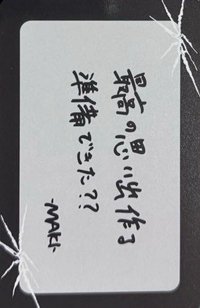 最高の思い出作る
準備できた??
-MAKI-